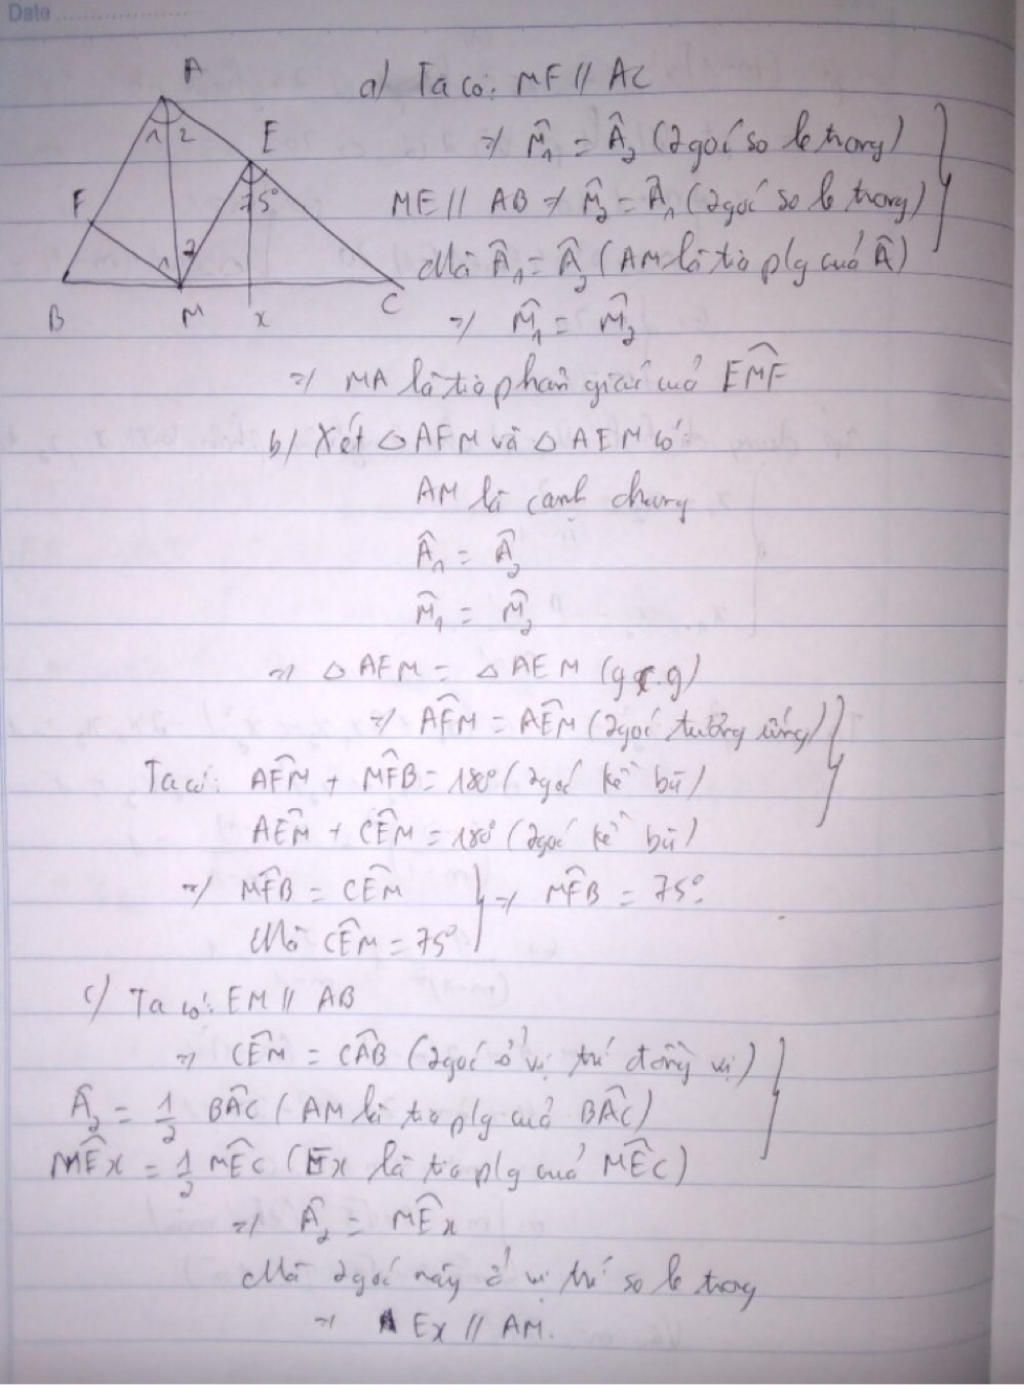 Date
A
1 2
E
75°
F
1 2
B
M
x
C
a) Ta có: MF // AC
=> M̂₁ = Â₂ (2 góc so le trong)
ME // AB => M̂₂ = Â₁ (2 góc so le trong)
Mà Â₁ = Â₂ (AM là tia p/g của Â)
=> M̂₁ = M̂₂
=> MA là tia phân giác của EM̂F
b) Xét △AFM và △AEM có:
AM là cạnh chung
Â₁ = Â₂
M̂₁ = M̂₂
=> △AFM = △AEM (g.c.g)
=> AF̂M = AÊM (2 góc tương ứng)
Ta có: AF̂M + MF̂B = 180° (2 góc kề bù)
AÊM + CÊM = 180° (2 góc kề bù)
=> MF̂B = CÊM
=> MF̂B = 75°
Mà CÊM = 75°
c) Ta có: EM // AB
=> CÊM = CÂB (2 góc ở vị trí đồng vị)
Â₂ = 1/2 BÂC (AM là tia p/g của BÂC)
MÊx = 1/2 MÊC (Ex là tia p/g của MÊC)
=> Â₂ = MÊx
Mà 2 góc này ở vị trí so le trong
=> Ex // AM.